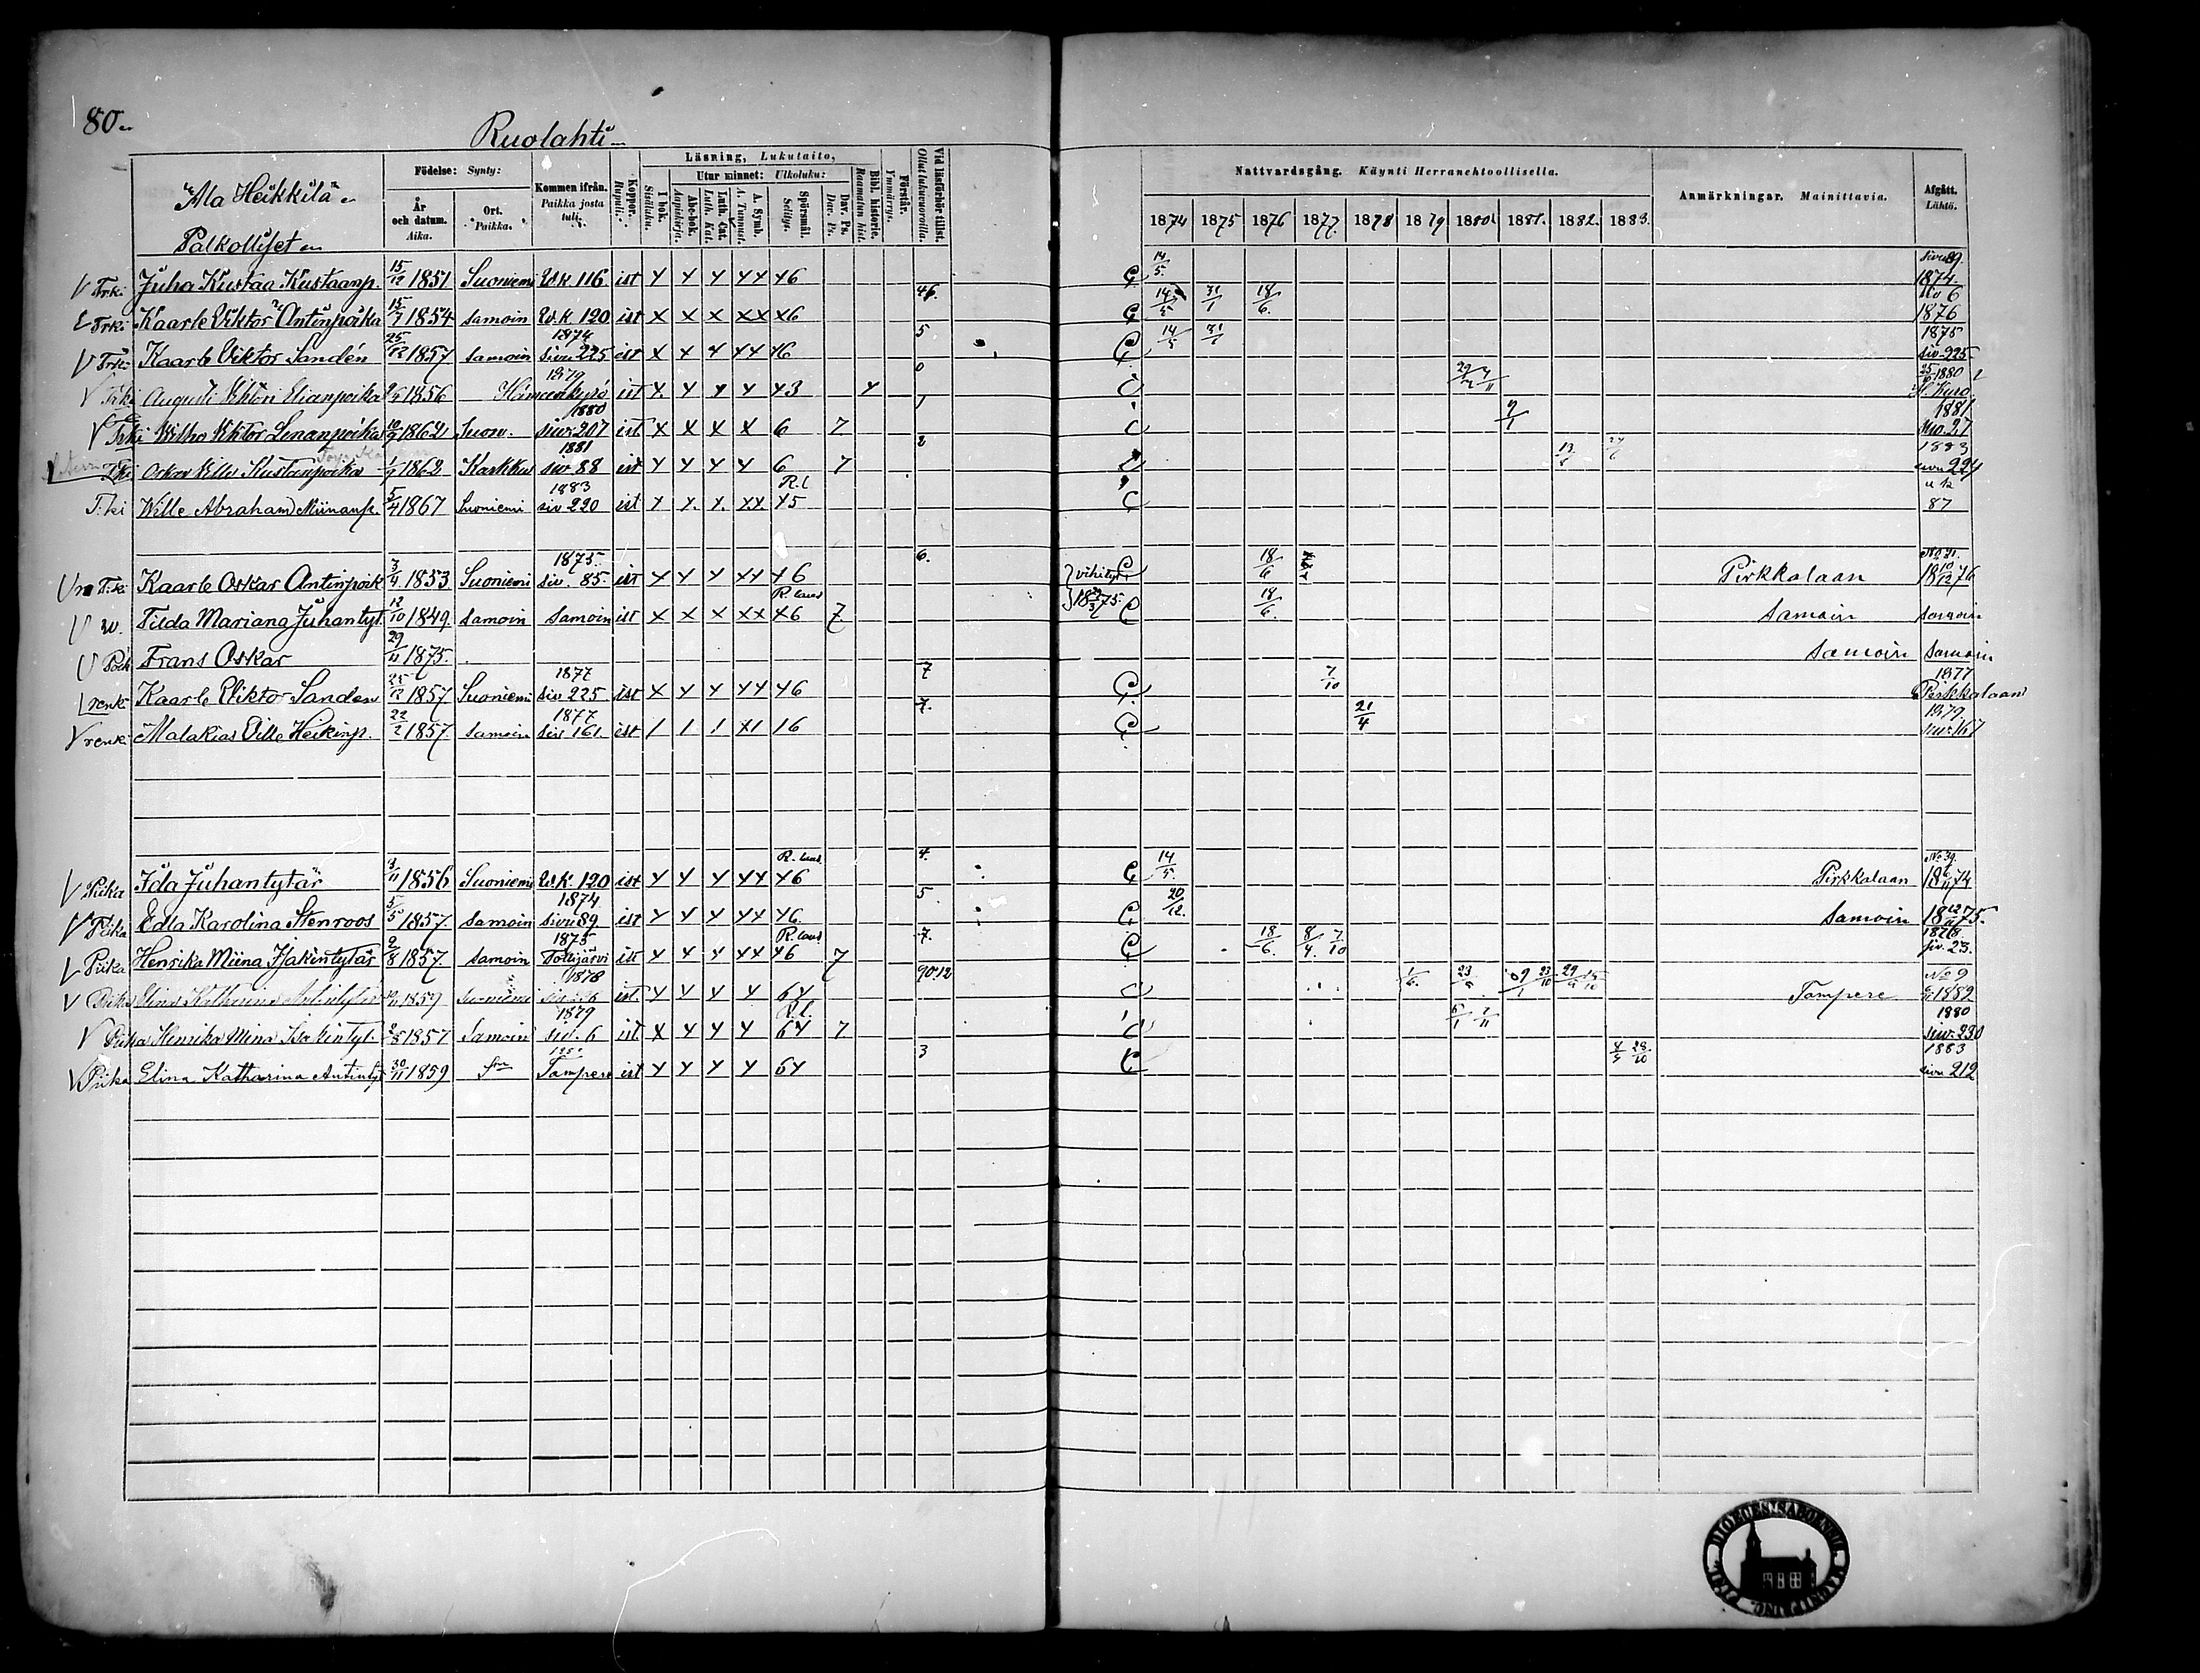 80
Ruolahti
Läsning, Lukutaito,
Vid läsförhör tillst.
Ollut lukuvuoroilla.
"Ala Heikkilä"
Födelse: Synty:
Kommen ifrån.
Paikka josta tuli.
Koppor.
Rupuli.
I bok.
Sisäluku.
Utur minnet: Ulkoluku:
Abc-bok.
Aapiskirja.
Luth. Cat.
Luth. Kat.
A. Symb.
A. Tunnust.
Spörsmål.
Selitys.
Dav. Ps.
Dav. Ps.
Bibl. historie.
Raamatun hist.
Förstår.
Ymmärrys.
År och datum.
Aika.
Ort.
Paikka.
Nattvardsgång. Käynti Herranehtoollisella.
Anmärkningar. Mainittavia.
Afgått.
Lähtö.
1874 1875 1876 1877. 1878 1879 1880. 1881. 1882. 1883.
Palkolliset
Trki Juha Kustaa Kustaanp. 15/12 1851 Suoniemi W.K. 116 ist x x x xx x6 14/5 Sivu 89. 1874.
Trki Kaarle Viktor Antinpoika 15/7 1854 samoin W.K. 120 ist x x x xx x6 46. 14/5 31/1 18/6. No 6 1876
Trki Kaarle Viktor Sandén 25/12 1857 samoin 1874 sivu 225 ist x x x xx x6 5 14/5 31/1 1875 siv. 225
Trki Augusti Viktori Elianpoika 1856 1879 Hämeenkyrö ist x x x x x3 x 0 25/10 1880 H. Kyrö
Trki Wilho Viktor Lenanpoika 10/9 1862 Suon. 1880 sivu 207 ist x x x x 6 7 1 1881 No. 27
Trki Oskar Ville Kustanpoika 1/9 1862 Karkku 1881 siv 88 ist x x x x 6 7 2 1883 sivu 224
T.ki Wille Abraham Miinanp. 5/4 1867 Suoniemi 1883 siv 220 ist x x. x. xx. x5 R.l 87
T.ki Kaarle Oskar Antinpoik 3/4 1853 Suoniemi 1875. siv. 85. ist x x x xx x6 6. vihityt 18 75. 18/6 Pirkkalaan No 31. 18 10/12 76
w. Tilda Mariana Juhantyt. 12/10 1849 samoin samoin ist x x x xx x6 R. laus 7. 18/6. Samoin samoin
Poik Frans Oskar 29/11 1875. Samoin Samoin
renki Kaarle Viktor Sanden 25/12 1857. Suoniemi 1877 siv 225 ist x x x xx x6 7 7/10 1877 Pirkkalaan
renki Malakias Ville Heikinp. 22/2 1857. samoin 1877 siv 161. ist 1 1 1 x1 16 7. 21/4 1879 sivu 167
Piika Ida Juhantytär 3/11 1856 Suoniemi W.K. 120 ist x x x xx x6 R. laus. 4. 14/5. Pirkkalaan No 39. 18 74
Piika Edla Karolina Stenroos 5/5 1857. samoin 1874 sivu 89 ist x x x xx x6. 5 20/12. Samoin 18 75.
Piika Henrika Miina Isakintytär 2/8 1857. samoin 1875 Tottijärvi ist x x x xx x6 R. laus 7 7. 18/6. 8/4. 7/10 1878. siv. 23.
Piika Elina Katharina Antintytär 30/11 1859 Suoniemi 1878 ist. x x x x 64 Tampere No 9 1882
Piika Henrika Miina Isakintyt. 2/8 1857 Samoin 1879 siv. 6 ist x x x x 64 R.l. 7. 1880 sivu. 230
Piika Elina Katharina Antintyt 30/11 1859 Tampere ist x x x x 64 3 28/10 1883 sivu 212